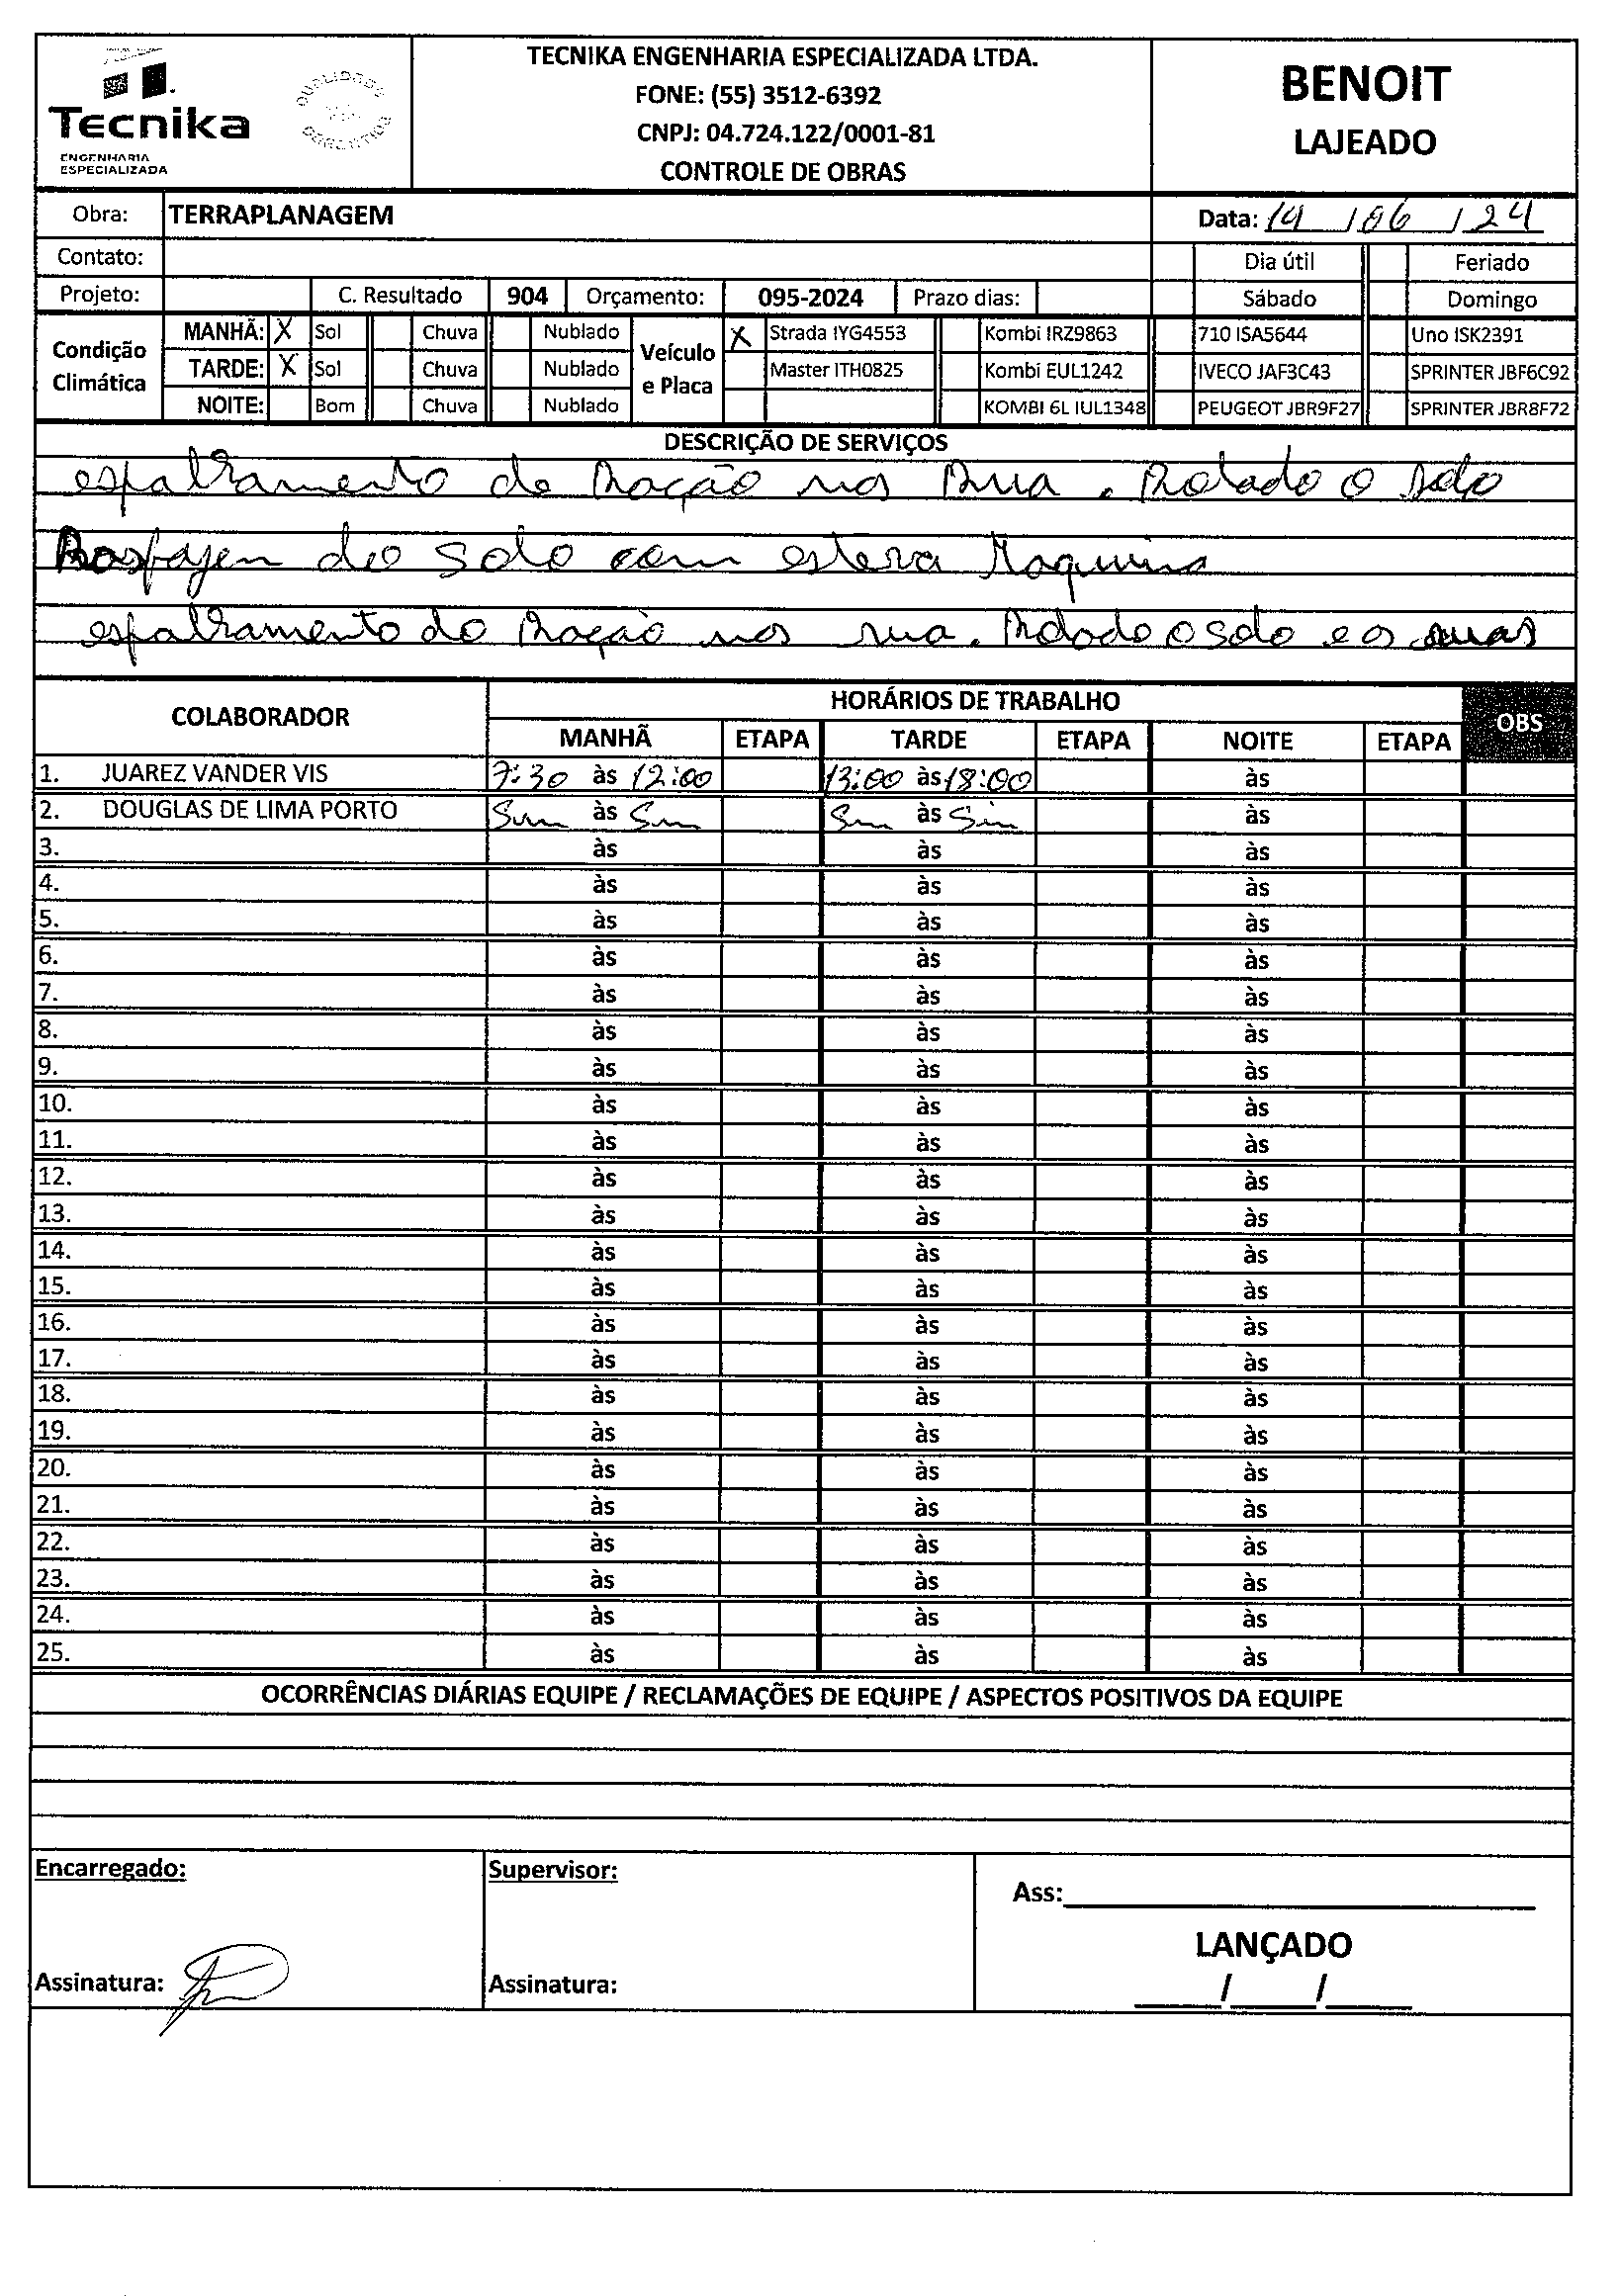 Tecnika
ENGENHARIA
ESPECIALIZADA
TECNIKA ENGENHARIA ESPECIALIZADA LTDA.
FONE: (55) 3512-6392
CNPJ: 04.724.122/0001-81
CONTROLE DE OBRAS
BENOIT
LAJEADO
Obra: TERRAPLANAGEM
Data: 14 / 06 / 24
Contato:
Dia útil Feriado
Projeto: C. Resultado 904 Orçamento: 095-2024 Prazo dias: Sábado Domingo
Condição Climática
MANHÃ: X Sol Chuva Nublado
TARDE: X Sol Chuva Nublado
NOITE: Bom Chuva Nublado
Veículo e Placa
X Strada IYG4553 Kombi IRZ9863 710 ISA5644 Uno ISK2391
Master ITH0825 Kombi EUL1242 IVECO JAF3C43 SPRINTER JBF6C92
KOMBI 6L IUL1348 PEUGEOT JBR9F27 SPRINTER JBR8F72
DESCRIÇÃO DE SERVIÇOS
espalhamento de ração nos Rua. Rolado o solo
do solo com esteva Maquina
espalhamento do ração nos rua. o solo e as ruas
COLABORADOR HORÁRIOS DE TRABALHO OBS
MANHÃ ETAPA TARDE ETAPA NOITE ETAPA
1. JUAREZ VANDER VIS 7:30 às 12:00 13:00 às 18:00 às
2. DOUGLAS DE LIMA PORTO às às às
3. às às às
4. às às às
5. às às às
6. às às às
7. às às às
8. às às às
9. às às às
10. às às às
11. às às às
12. às às às
13. às às às
14. às às às
15. às às às
16. às às às
17. às às às
18. às às às
19. às às às
20. às às às
21. às às às
22. às às às
23. às às às
24. às às às
25. às às às
OCORRÊNCIAS DIÁRIAS EQUIPE / RECLAMAÇÕES DE EQUIPE / ASPECTOS POSITIVOS DA EQUIPE
Encarregado:
Supervisor:
Ass:
LANÇADO
Assinatura:
Assinatura:
/ /